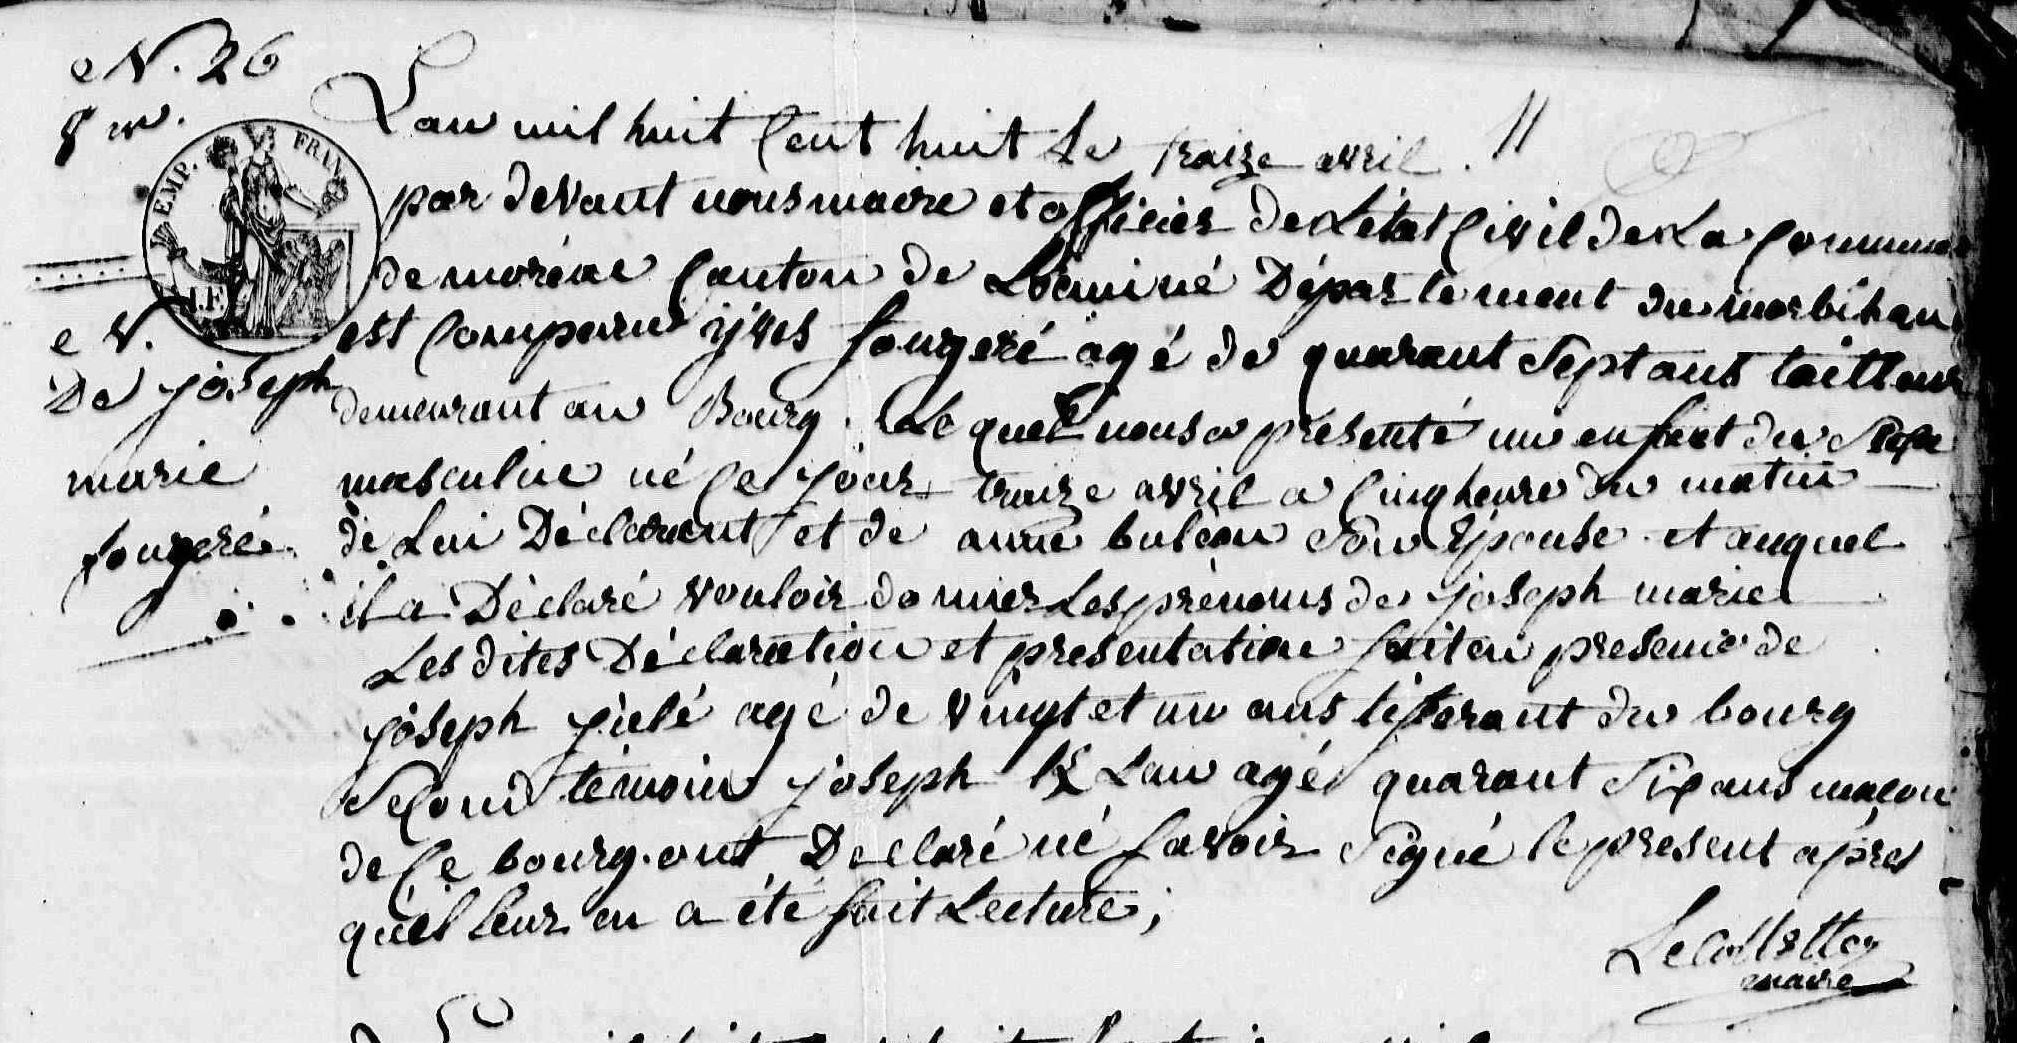 N. 26
EMP. FRAN
N.
De joseph
marie
fougeré
Lan mil huit Cent huit Le traize avril .
par devant nous maire et officier de L'état Civil de La Commune
de moréac Canton de Locminé Département du morbihan
est Comparu yves fougeré agé de quarant Sept ans tailleur
demeurant au Bourg. Le quel nous a présenté un enfant du Sexe
masculin né Ce jour traize avril a Cinq heure du matin
de Lui Déclarant et de anne buléon Son Epouse et auquel
il a Déclaré vouloir donner Les prénoms de joseph marie
Les dites Déclaration et presentation fait en presence de
joseph agé de vingt et un ans du bourg
Second témoin joseph agé quarant Six ans maçon
de Ce bourg. ont Declaré né Savoir Signé le present apres
qu'eil leur en a été fait Lecture;
maire